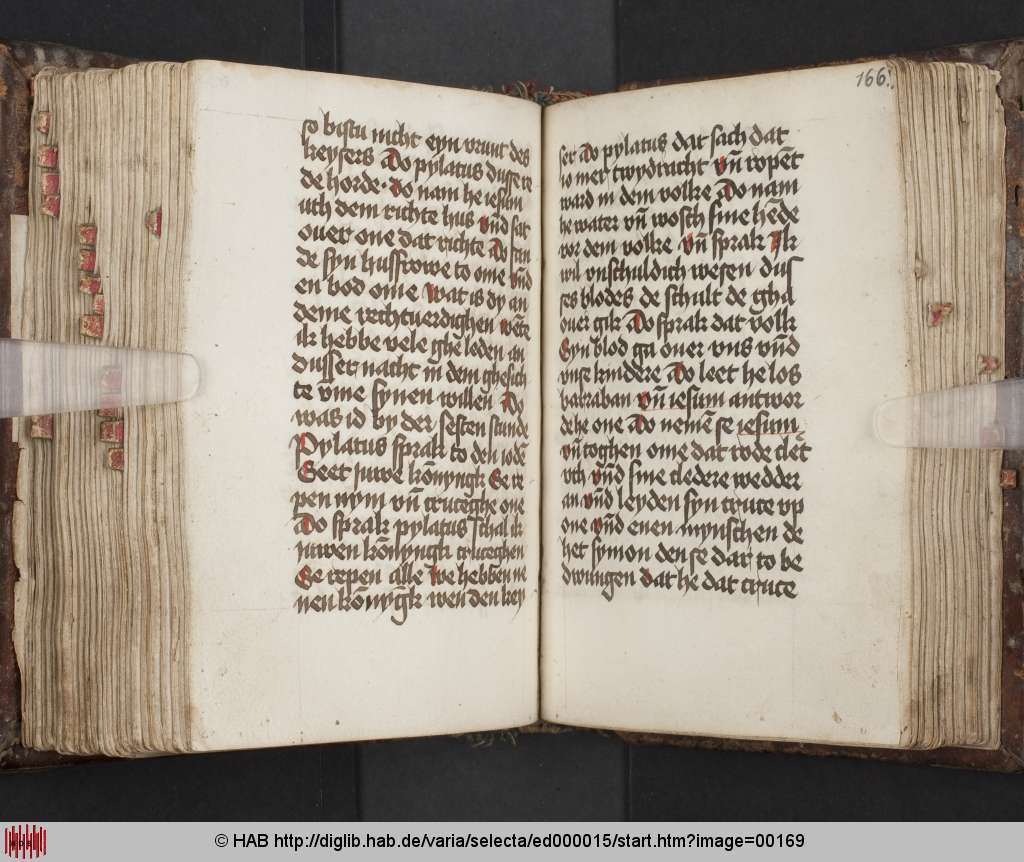 so bistu nicht eyn vrunt des
keysers Do pylatus dusse re
de horde · Do nam he iesum
uth dem richte hus vn̄d sat
ouer one dat richte Do sen
de syn husfrowe to ome vn̄d
en bod ome wat is dy an
deme rechtuerdighen wēte
ik hebbe vele ghe leden an
dusser nacht in dem ghesich
te vm̄e synen willen Do
was id by der sesten stunde
Pylatus sprak to den iodē
Seet juwe kōnyngk Se re
pen nym vn̄ cruceghe one
Do sprak pylatus schal ik
juwen kōnyngk cruceghen
Se repen alle we hebben ne
nen kōnyngk wen den key
166.
ser Do pylatus dat sach dat
io mer twydracht vn̄ ropēt
ward in dem volke Do nam
he water vn̄ wosch sine hēde
vor dem volke vn̄ sprak Ik
wil vnschuldich wesen dus
ses blodes de schult de gha
ouer gik Do sprak dat volk
Syn blod ga ouer vns vn̄d
vnse kindere Do leet he los
barraban vn̄ iesum antwor
de he one Do nemē se iesum
vn̄ toghen ome dat rode clet
vth vn̄d sine cledere wedder
an vn̄d leyden syn cruce vp
one vn̄d enen mynschen de
het symon den se dar to be
dwungen dat he dat cruce
© HAB http://diglib.hab.de/varia/selecta/ed000015/start.htm?image=00169